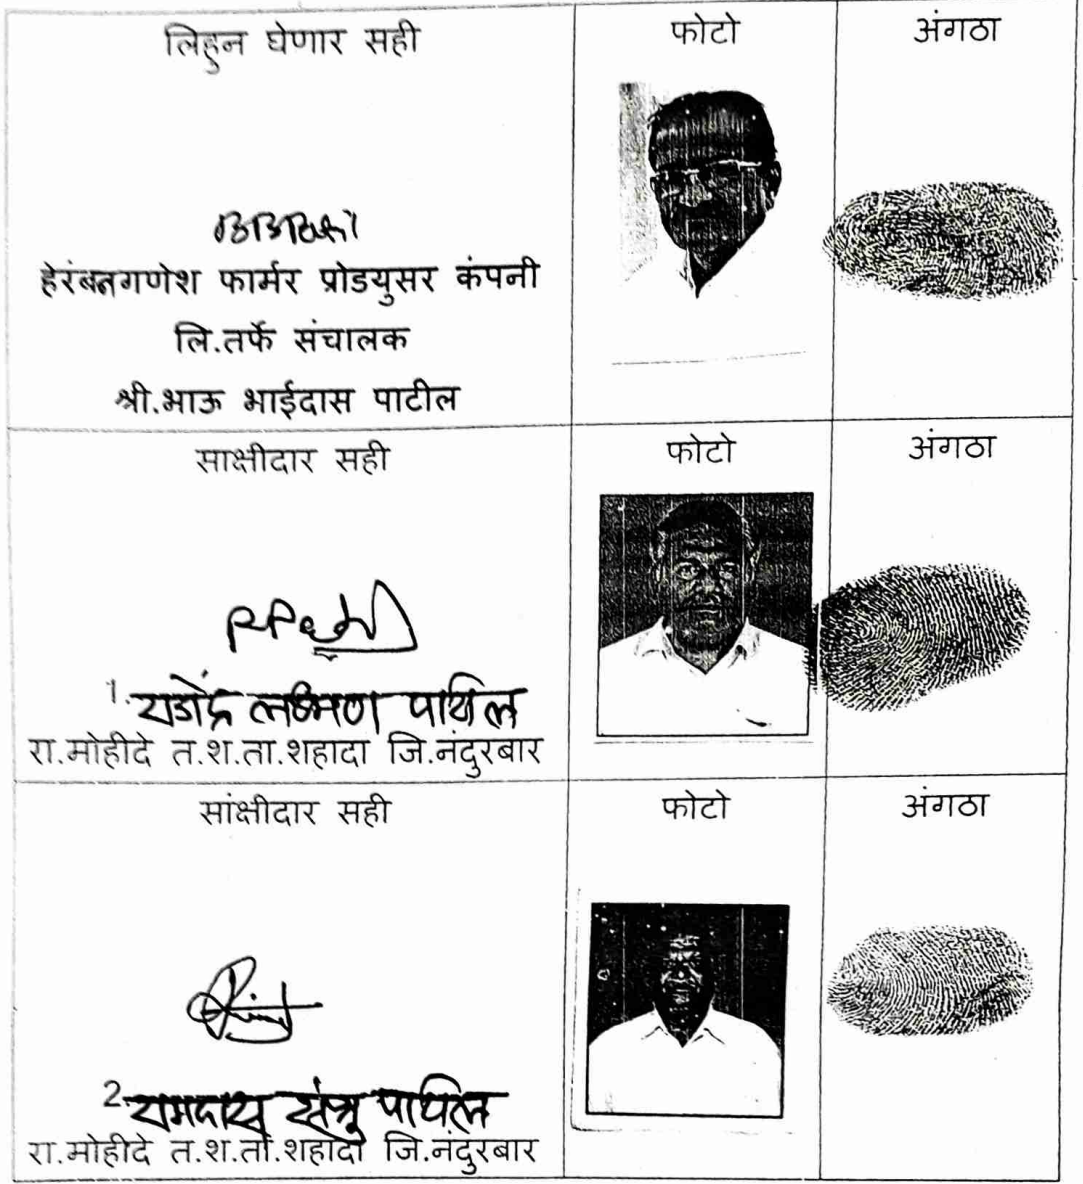 लिहुन घेणार सही
फोटो
अंगठा
हेरंबगणेश फार्मर प्रोडयुसर कंपनी
लि.तर्फे संचालक
श्री.भाऊ भाईदास पाटील
साक्षीदार सही
फोटो
अंगठा
1. राजेंद्र लक्ष्मण पाटील
रा.मोहीदे त.श.ता.शहादा जि.नंदुरबार
सांक्षीदार सही
फोटो
अंगठा
2. रामदास पाटील
रा.मोहीदे त.श.ता.शहादा जि.नंदुरबार